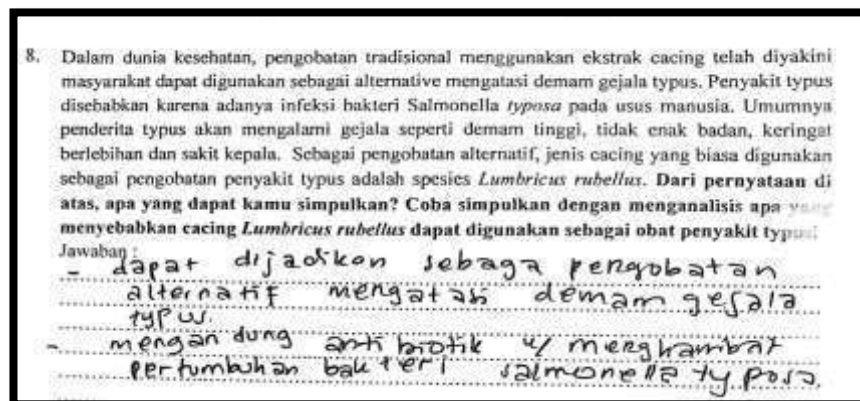 8. Dalam dunia kesehatan, pengobatan tradisional menggunakan ekstrak cacing telah diyakini
masyarakat dapat digunakan sebagai alternative mengatasi demam gejala typus. Penyakit typus
disebabkan karena adanya infeksi bakteri Salmonella typosa pada usus manusia. Umumnya
penderita typus akan mengalami gejala seperti demam tinggi, tidak enak badan, keringat
berlebihan dan sakit kepala. Sebagai pengobatan alternatif, jenis cacing yang biasa digunakan
sebagai pengobatan penyakit typus adalah spesies Lumbricus rubellus. Dari pernyataan di
atas, apa yang dapat kamu simpulkan? Coba simpulkan dengan menganalisis apa yang
menyebabkan cacing Lumbricus rubellus dapat digunakan sebagai obat penyakit typus!
Jawaban :
- dapat dijadikan sebaga pengobatan
alternatif mengatasi demam gejala
typus.
- mengandung antibiotik u/ menghambat
pertumbuhan bakteri salmonella typosa.